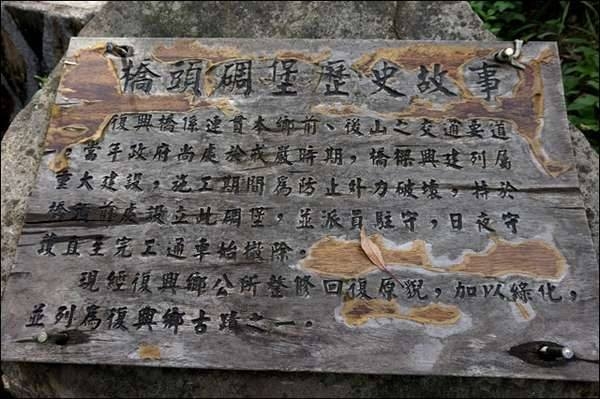 橋頭碉堡歷史故事
復興橋係連貫本鄉前、後山之交通要道
。當年政府尚處於戒嚴時期，橋樑興建列屬
重大建設，施工期間為防止外力破壞，特於
橋頭前處設立此碉堡，並派員駐守，日夜守
護直至完工通車始撤除。
現經復興鄉公所整修回復原貌，加以綠化，
並列為復興鄉古蹟之一。